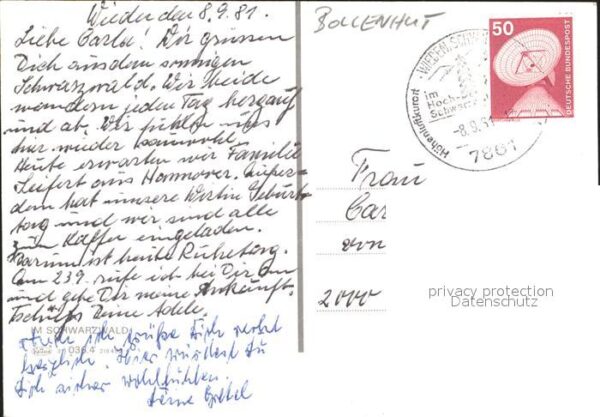 Wieden den 8.9.81.
Liebe Carla! Wir grüssen
Dich aus dem sonnigen
Schwarzwald. Wir beide
wandern jeden Tag bergauf
und ab. Wir fühlen uns
hier wieder sauwohl.
Heute erwarten wir Familie
Seifert aus Hannover. Ausser-
dem hat unsere Wirtin Geburts-
tag und wir sind alle
zum Kaffee eingeladen.
Darum ist heute Ruhetag.
Am 23.9. rufe ich bei Dir an
und gebe Dir meine Ankunft.
Tschüss Deine Adele.
IM SCHWARZWALD
036.4
Auch ich grüße Dich recht
herzlich. Hier würdest Du
Dich sicher wohlfühlen.
Deine
BOLLENHUT
50
DEUTSCHE BUNDESPOST
WIEDEN, SCHW
im
Hoch-
Schwarz
Höhenluftkurort
-8.9.81
7861
Frau
Car
von
2000
privacy protection
Datenschutz